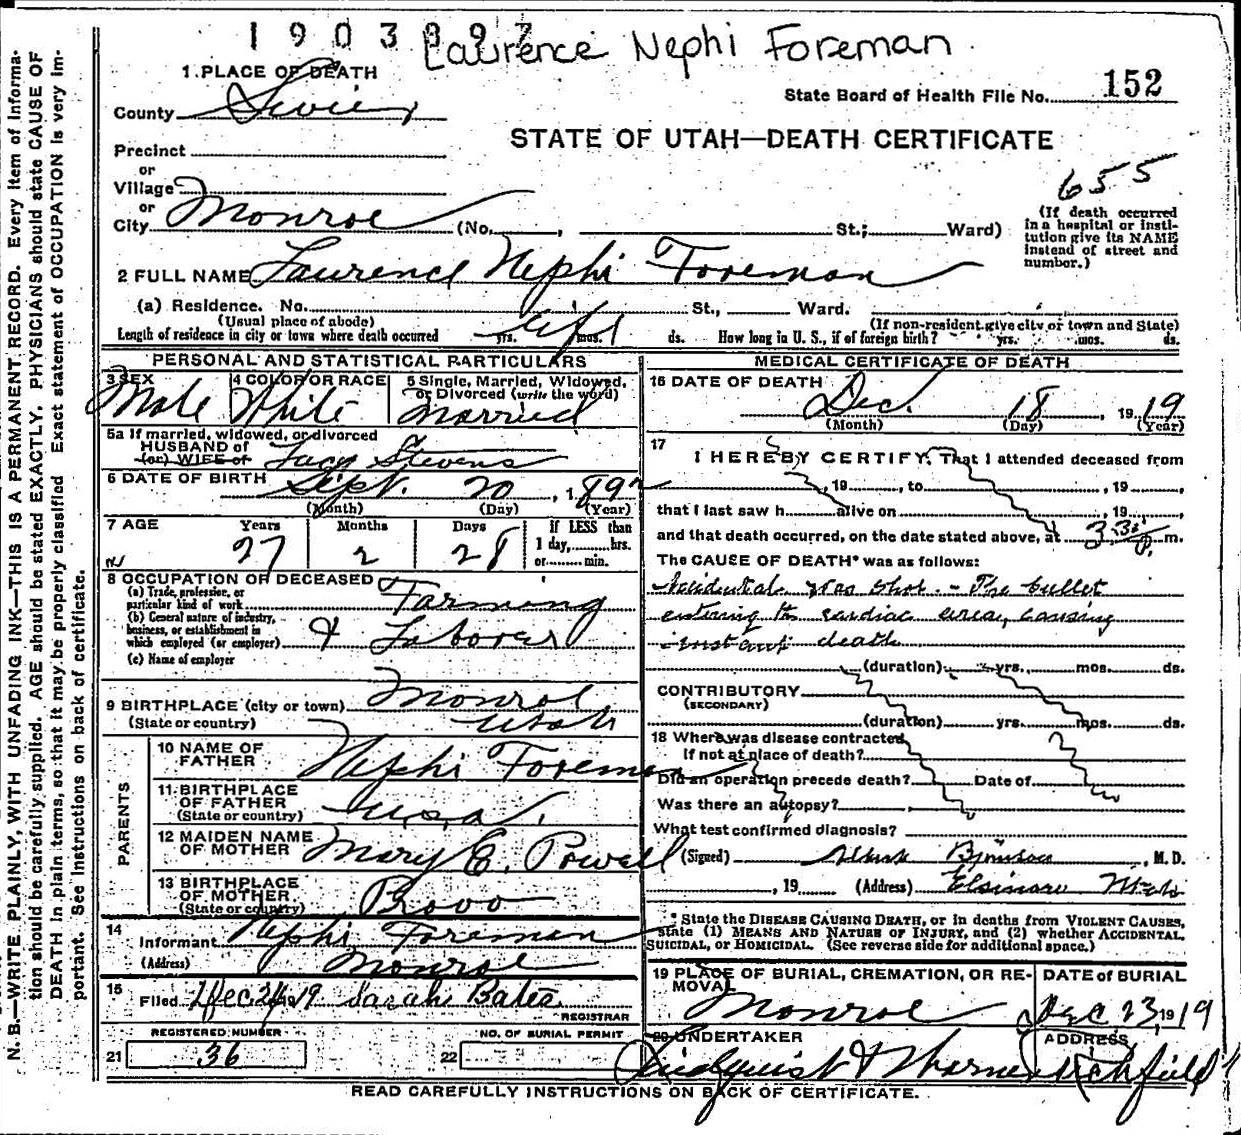 Laurence Nephi Foreman
1. PLACE OF DEATH
152
State Board of Health File No.
County Sevier
STATE OF UTAH—DEATH CERTIFICATE
Precinct
or
Village
655
or
City Monroe (No. , St.; Ward)
(If death occurred in a hospital or institution give its NAME instead of street and number.)
2 FULL NAME Laurence Nephi Foreman
(a) Residence. No. St., Ward.
(Usual place of abode) (If non-resident give city or town and State)
Length of residence in city or town where death occurred yrs. Life mos. ds. How long in U. S., if of foreign birth? yrs. mos. ds.
PERSONAL AND STATISTICAL PARTICULARS
3 SEX Male
4 COLOR OR RACE White
5 Single, Married, Widowed, or Divorced (write the word) Married
5a If married, widowed, or divorced
HUSBAND of
(or) WIFE of Stevens
6 DATE OF BIRTH Sept. 20, 189
(Month) (Day) (Year)
7 AGE Years Months Days If LESS than
27 2 28 1 day, hrs.
or min.
8 OCCUPATION OF DECEASED
(a) Trade, profession, or particular kind of work Farming
(b) General nature of industry, business, or establishment in which employed (or employer) & Laborer
(c) Name of employer
9 BIRTHPLACE (city or town) Monroe
(State or country) Utah
PARENTS
10 NAME OF FATHER Nephi Foreman
11 BIRTHPLACE OF FATHER (State or country) U.S.A.
12 MAIDEN NAME OF MOTHER Mary E. Powell
13 BIRTHPLACE OF MOTHER (State or country) Provo
14 Informant Nephi Foreman
(Address) Monroe
15 Filed Dec 24 1919 Sarah Bates
REGISTRAR
REGISTERED NUMBER NO. OF BURIAL PERMIT
21 36 22
MEDICAL CERTIFICATE OF DEATH
16 DATE OF DEATH Dec. 18, 1919
(Month) (Day) (Year)
17 I HEREBY CERTIFY, That I attended deceased from
, 19 , to , 19 ,
that I last saw h alive on , 19 ,
and that death occurred, on the date stated above, at 3 30 P. m.
The CAUSE OF DEATH* was as follows:
Accidental was shot. - The bullet
entering the cardiac area, causing
instant death
(duration) yrs. mos. ds.
CONTRIBUTORY
(SECONDARY)
(duration) yrs. mos. ds.
18 Where was disease contracted
if not at place of death?
Did an operation precede death? Date of
Was there an autopsy?
What test confirmed diagnosis?
(Signed) , M. D.
, 19 (Address) Elsinore Utah
* State the DISEASE CAUSING DEATH, or in deaths from VIOLENT CAUSES, state (1) MEANS AND NATURE OF INJURY, and (2) whether ACCIDENTAL, SUICIDAL, or HOMICIDAL. (See reverse side for additional space.)
19 PLACE OF BURIAL, CREMATION, OR REMOVAL Monroe
DATE of BURIAL Dec 23, 1919
20 UNDERTAKER
ADDRESS Richfield
READ CAREFULLY INSTRUCTIONS ON BACK OF CERTIFICATE.
N. B.—WRITE PLAINLY, WITH UNFADING INK—THIS IS A PERMANENT RECORD. Every item of Informa-
tion should be carefully supplied. AGE should be stated EXACTLY. PHYSICIANS should state CAUSE OF
DEATH in plain terms, so that it may be properly classified. Exact statement of OCCUPATION is very im-
portant. See Instructions on back of certificate.